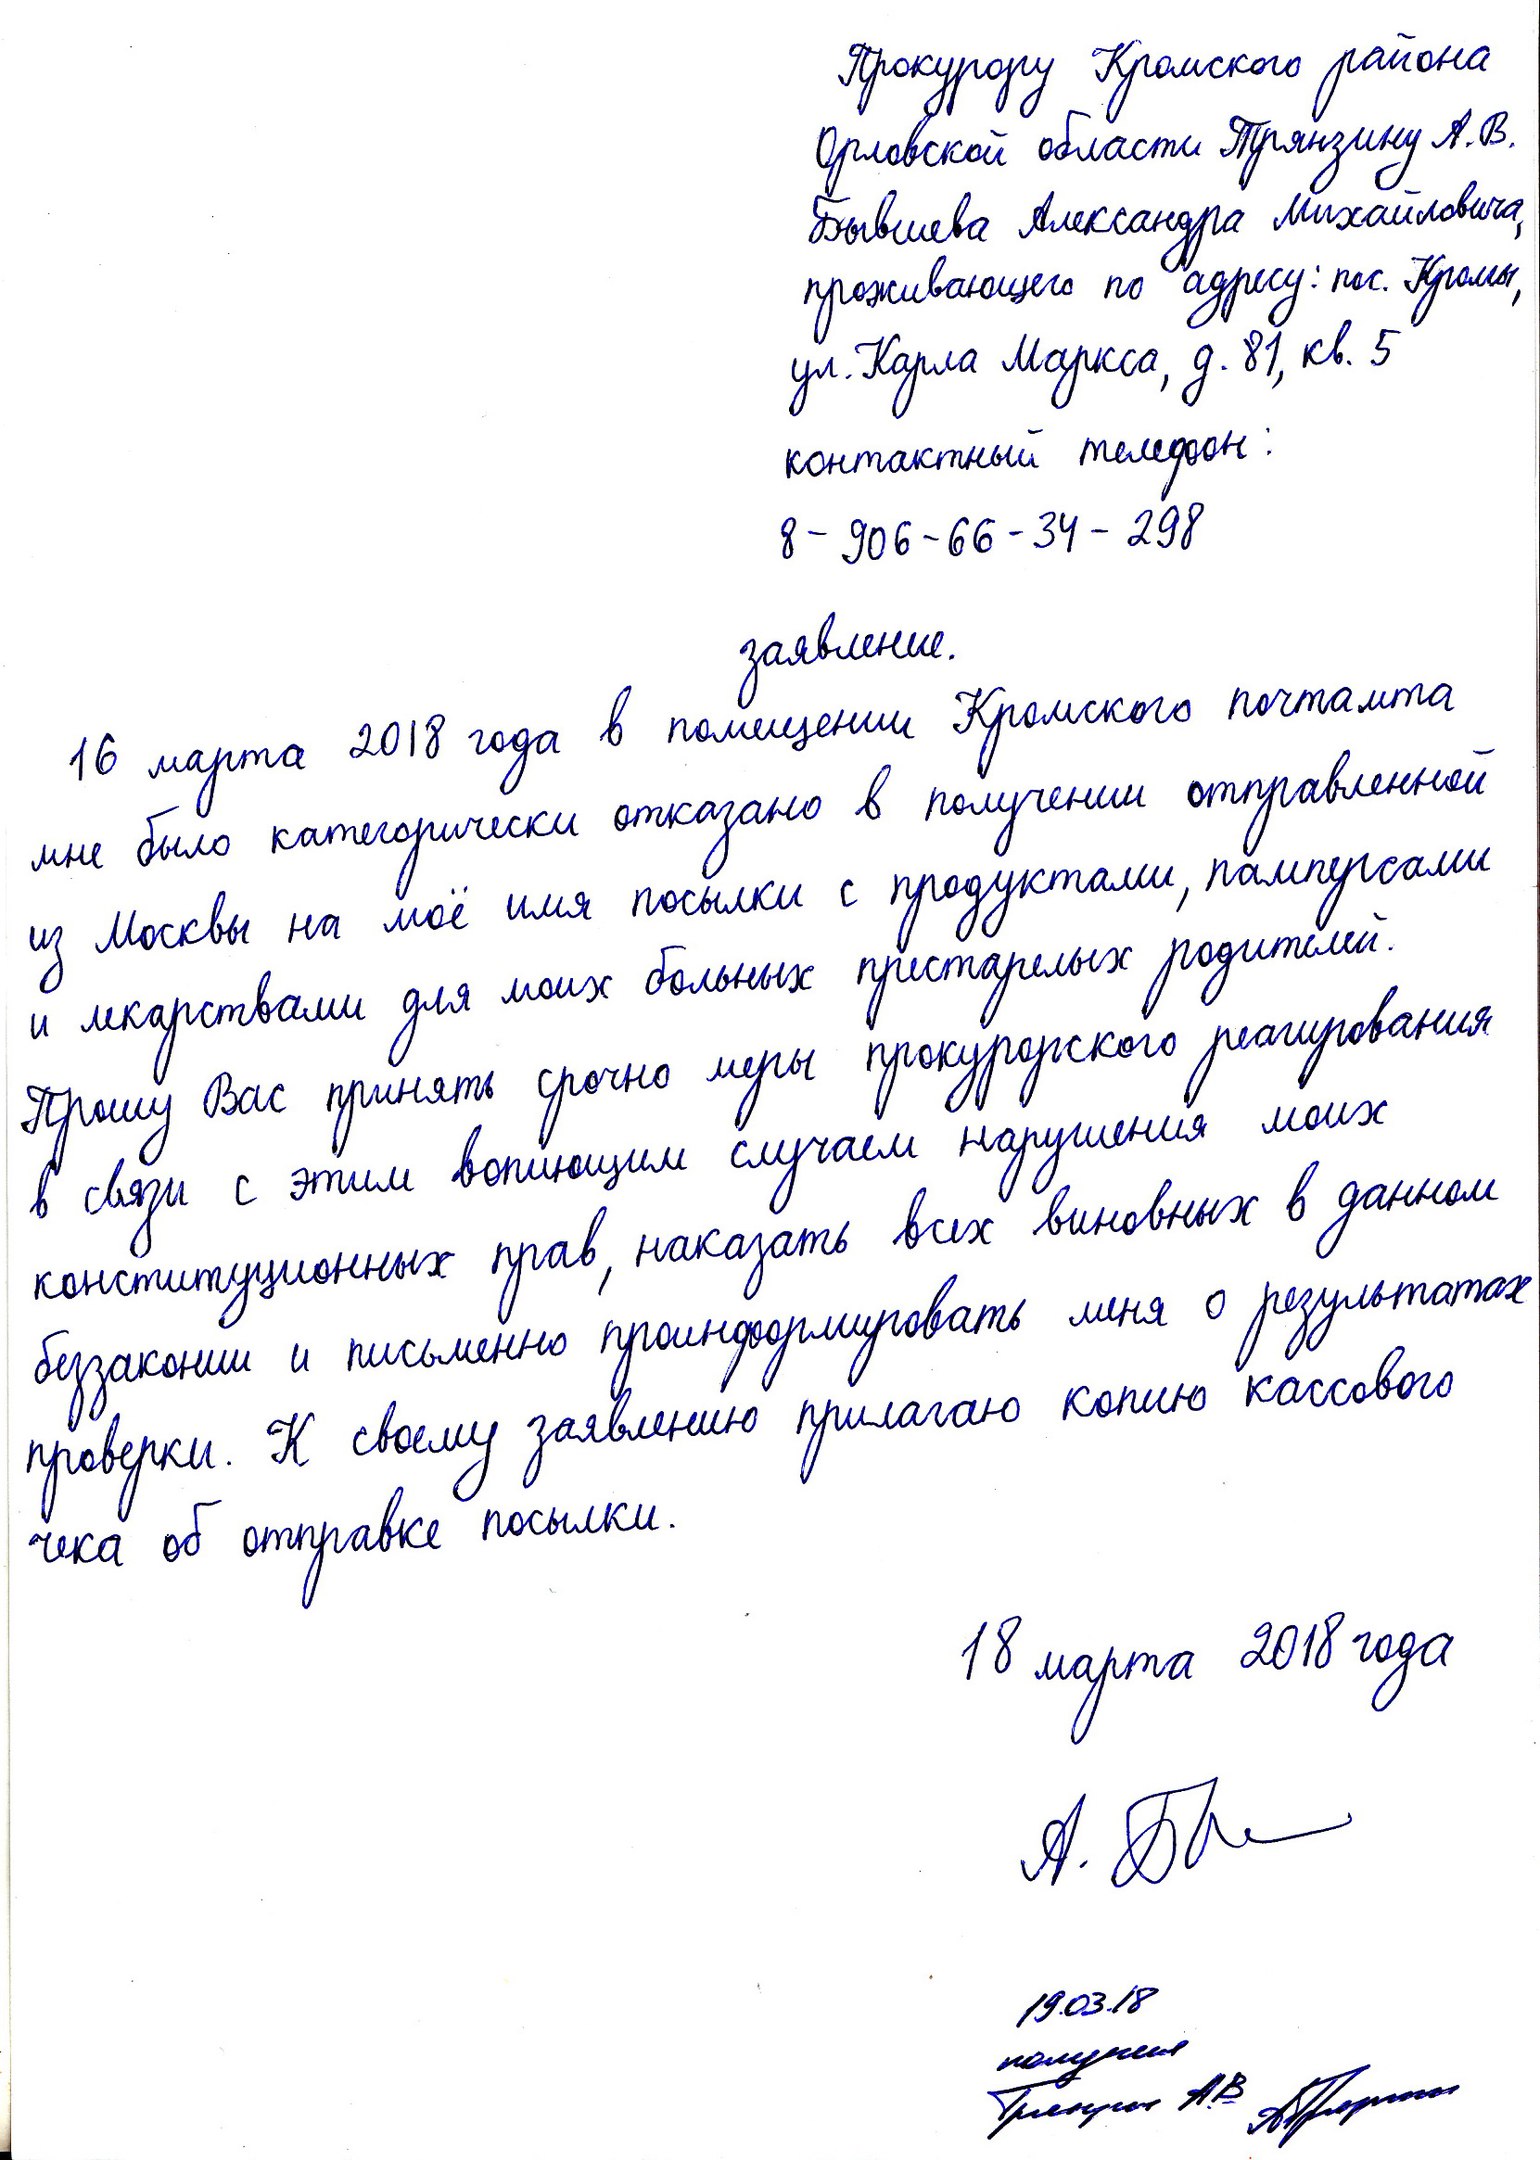 Прокурору Кромского района
Орловской области Трянзину А.В.
Бывшева Александра Михайловича,
проживающего по адресу: пос. Кромы,
ул. Карла Маркса, д. 81, кв. 5
контактный телефон:
8-906-66-34-298
заявление.
16 марта 2018 года в помещении Кромского почтамта
мне было категорически отказано в получении отправленной
из Москвы на моё имя посылки с продуктами, памперсами
и лекарствами для моих больных престарелых родителей.
Прошу Вас принять срочно меры прокурорского реагирования
в связи с этим вопиющим случаем нарушения моих
конституционных прав, наказать всех виновных в данном
беззаконии и письменно проинформировать меня о результатах
проверки. К своему заявлению прилагаю копию кассового
чека об отправке посылки.
18 марта 2018 года
А. Бы
19.03.18
получил
Трянзин А.В